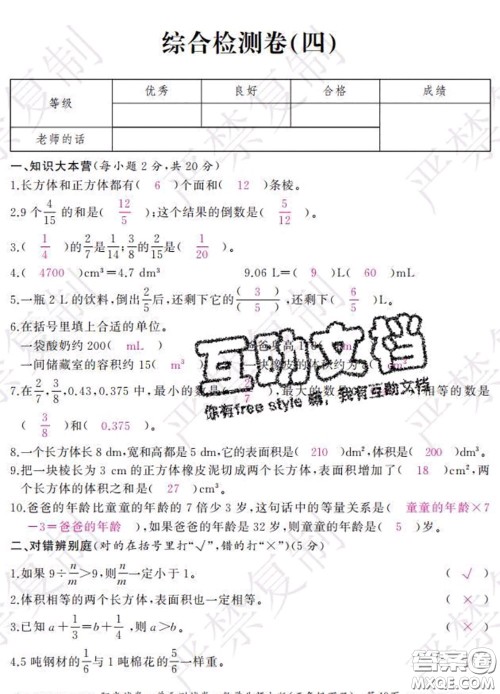 综合检测卷(四)
等级 优秀 良好 合格 成绩
老师的话
一、知识大本营(每小题2分,共20分)
1.长方体和正方体都有( 6 )个面和( 12 )条棱。
2.9个4/15的和是( 12/5 );这个结果的倒数是( 5/12 )。
3.( 1/4 )的2/7是1/14;3/8的2/15是( 1/20 )。
4.( 4700 )cm³=4.7 dm³ 9.06 L=( 9 )L( 60 )mL
5.一瓶2 L的饮料,倒出2/5后,还剩下它的( 3 )/( 5 ),还剩下
6.在括号里填上合适的单位。
一袋酸奶约200( mL )
一间储藏室的容积约15( m³ 一块橡皮的体积约为
7.在2/7,3/8,0.43,0.375中,最小的数是 ,最大的数 相等的数是
( 3/8 )和( 0.375 )。
8.一个长方体长8 dm,宽和高都是5 dm,它的表面积是( 210 )dm²,体积是( 200 )dm³。
9.把一块棱长为3 cm的正方体橡皮泥切成两个长方体,表面积增加了( 18 )cm²,两
个长方体的体积之和是( 27 )cm³。
10.爸爸的年龄比童童的年龄的7倍少3岁,这句话中的等量关系是( 童童的年龄×7
-3=爸爸的年龄 ),如果爸爸的年龄是32岁,则童童的年龄是( 5 )岁。
二、对错辨别庭(对的在括号里打“√”,错的打“×”)(5分)
1.如果9÷n/m>9,则n/m一定小于1。 ( √ )
2.体积相等的两个长方体,表面积也一定相等。 ( × )
3.已知a+1/3=b+1/4,则a>b。 ( × )
4.5吨钢材的1/6与1吨棉花的5/6一样重。
严禁复制
互助文档
你有free style 嘛,我有互助文档
答案圈
MXQE.COM